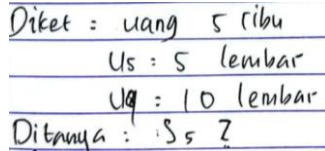 Diket : uang 5 ribu
U5 : 5 lembar
U9 : 10 lembar
Ditanya : S5 ?